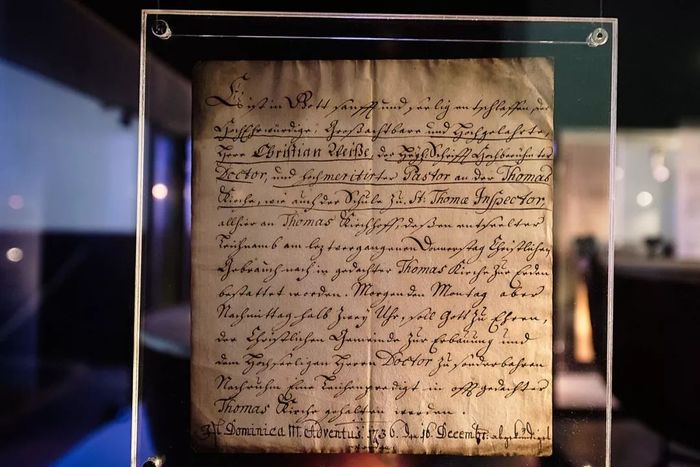 Es ist in Gott sanfft und seelig entschlaffen, der
HochEhrwürdige, Großachtbare und Hochgelahrte,
Herr Christian Weiße, der Heyl: Schrifft Hochberühmter
Doctor, und hochmeritirter Pastor an der Thomas
Kirche, wie auch der Schule zu St. Thomæ Inspector,
allhier an Thomas Kirchhoff, deßen entseelter
Leichnam am letztvergangenen Donnerstag Christlichen
Gebrauch nach in gedachter Thomas Kirche zur Erden
bestattet worden. Morgenden Montag aber
Nachmittag halb zwey Uhr, soll Gott zu Ehren,
der Christlichen Gemeinde zur Erbauung und
dem Hochseeligen Herrn Doctor zu sonderbahren
Nachruhm Eine Leichenpredigt in offtgedachter
Thomas Kirche gehalten werden.
Dominica III. Adventus 1736. den 16. Decembr. abgekündiget
worden